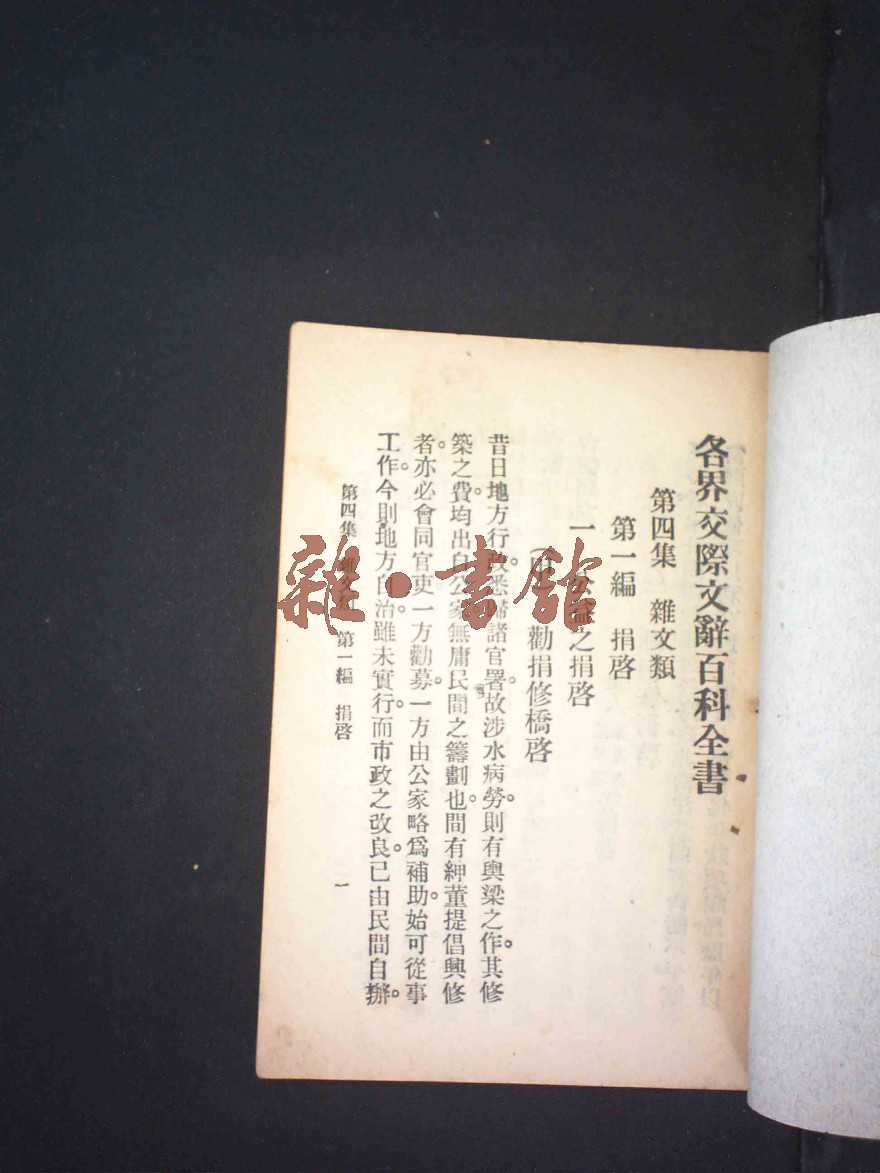 各界交際文辭百科全書
第四集 雜文類
第一編 捐啓
一 公益之捐啓
(甲) 勸捐修橋啓
昔日地方行政。悉歸諸官署。故涉水病勞。則有輿梁之作。其修
築之費。均出自公家。無庸民間之籌劃也。間有紳董提倡興修
者。亦必會同官吏。一方勸募。一方由公家略爲補助。始可從事
工作。今則地方自治。雖未實行。而市政之改良。已由民間自辦。
第四集 雜文類 第一編 捐啓
一
雜·書館